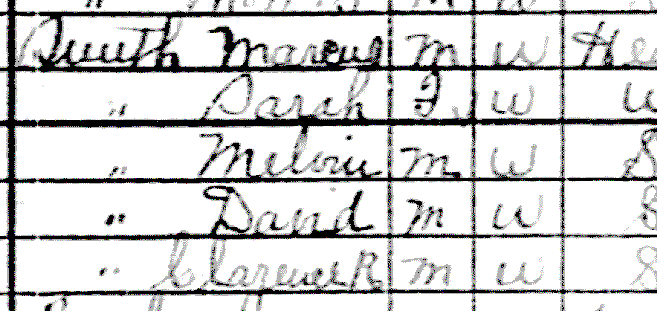 Smith Marcus M W He
" Sarah F W W
" Melvin M W S
" David M W S
" Clarence R M W S